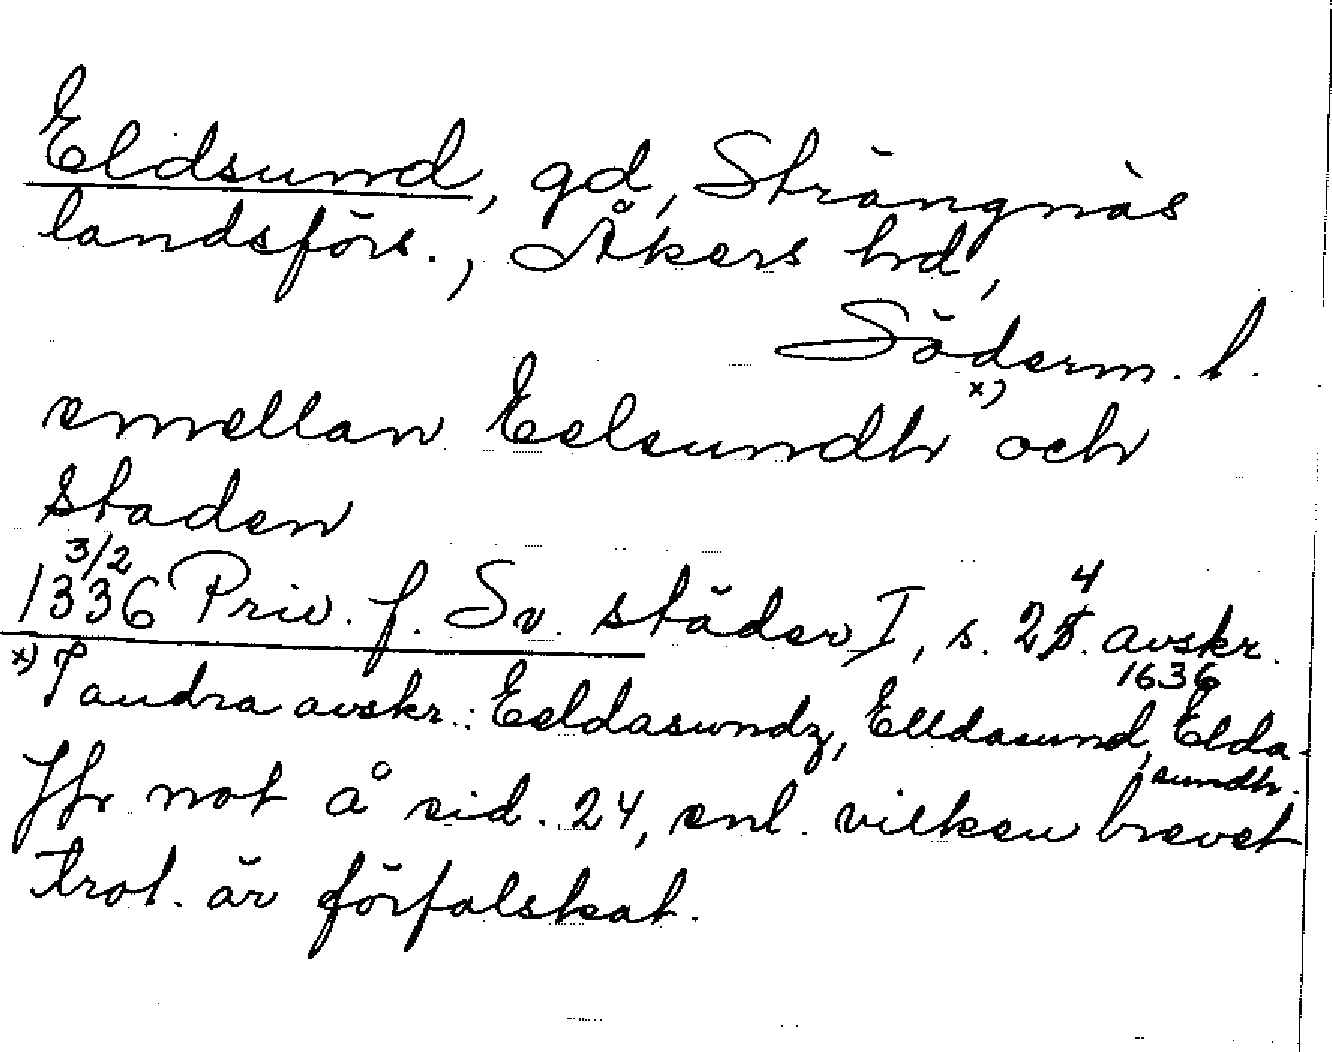 Eldsund, gd, Strängnäs
landsförs., Åkers hd,
Söderm. l.
emellan Eelsundh x) och
staden
1336 3/2 Priv. f. Sv. städer I, s. 24. avskr.
1636
x) I andra avskr.: Eeldasundz, Elldasund, Elda-
sundh.
Jfr not å sid. 24, enl. vilken brevet
trol. är förfalskat.